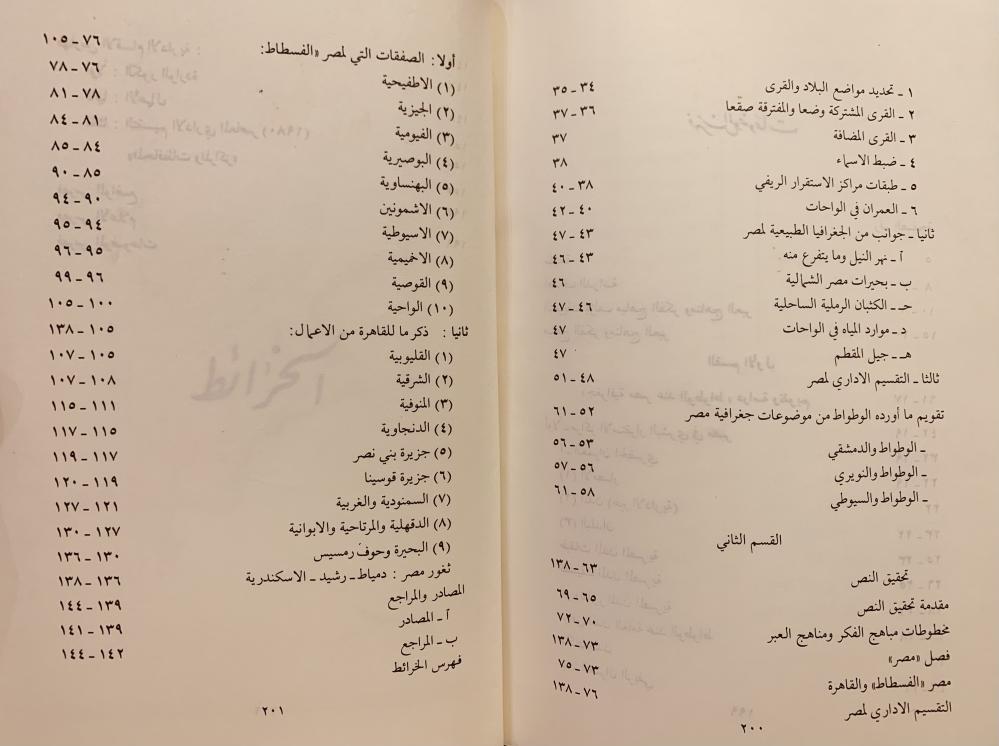 ١ ـ تحديد مواضع البلاد والقرى ٣٤ ـ ٣٥
٢ ـ القرى المشتركة وضعا والمفترقة صقعا ٣٦ ـ ٣٧
٣ ـ القرى المضافة ٣٧
٤ ـ ضبط الاسماء ٣٨
٥ ـ طبقات مراكز الاستقرار الريفي ٣٨ ـ ٤٠
٦ ـ العمران في الواحات ٤٠ ـ ٤٢
ثانيا ـ جوانب من الجغرافيا الطبيعية لمصر ٤٣ ـ ٤٧
أ ـ نهر النيل وما يتفرع منه ٤٣ ـ ٤٦
ب ـ بحيرات مصر الشمالية ٤٦
حـ ـ الكثبان الرملية الساحلية ٤٦ ـ ٤٧
د ـ موارد المياه في الواحات ٤٧
هـ ـ جبل المقطم ٤٧
ثالثا ـ التقسيم الاداري لمصر ٤٨ ـ ٥١
تقويم ما أورده الوطواط من موضوعات جغرافية مصر ٥٢ ـ ٦١
ـ الوطواط والدمشقي ٥٣ ـ ٥٦
ـ الوطواط والنويري ٥٦ ـ ٥٧
ـ الوطواط والسيوطي ٥٨ ـ ٦١
القسم الثاني
تحقيق النص ٦٣ ـ ١٣٨
مقدمة تحقيق النص ٦٥ ـ ٦٩
مخطوطات مباهج الفكر ومناهج العبر ٧٠ ـ ٧٢
فصل «مصر» ٧٣ ـ ١٣٨
مصر «الفسطاط» والقاهرة ٧٣ ـ ٧٥
التقسيم الاداري لمصر ٧٦ ـ ١٣٨
٢٠٠
أولا: الصفقات التي لمصر «الفسطاط: ٧٦ ـ ١٠٥
(١) الاطفيحية ٧٦ ـ ٧٨
(٢) الجيزية ٧٨ ـ ٨١
(٣) الفيومية ٨١ ـ ٨٤
(٤) البوصيرية ٨٤ ـ ٨٥
(٥) البهنساوية ٨٥ ـ ٩٠
(٦) الاشمونين ٩٠ ـ ٩٤
(٧) الاسيوطية ٩٤ ـ ٩٥
(٨) الاخميمية ٩٥ ـ ٩٦
(٩) القوصية ٩٦ ـ ٩٩
(١٠) الواحية ١٠٠ ـ ١٠٥
ثانيا : ذكر ما للقاهرة من الاعمال: ١٠٥ ـ ١٣٨
(١) القليوبية ١٠٥ ـ ١٠٧
(٢) الشرقية ١٠٨ ـ ١٠٧
(٣) المنوفية ١١١ ـ ١١٥
(٤) الدنجاوية ١١٥ ـ ١١٧
(٥) جزيرة بني نصر ١١٧ ـ ١١٩
(٦) جزيرة قوسينا ١١٩ ـ ١٢٠
(٧) السمنودية والغربية ١٢١ ـ ١٢٧
(٨) الدقهلية والمرتاحية والابوانية ١٢٧ ـ ١٣٠
(٩) البحيرة وحوف رمسيس ١٣٠ ـ ١٣٦
ثغور مصر : دمياط ـ رشيد ـ الاسكندرية ١٣٦ ـ ١٣٨
المصادر والمراجع ١٣٩ ـ ١٤٤
أ ـ المصادر ١٣٩ ـ ١٤١
ب ـ المراجع ١٤٢ ـ ١٤٤
فهرس الخرائط
٢٠١